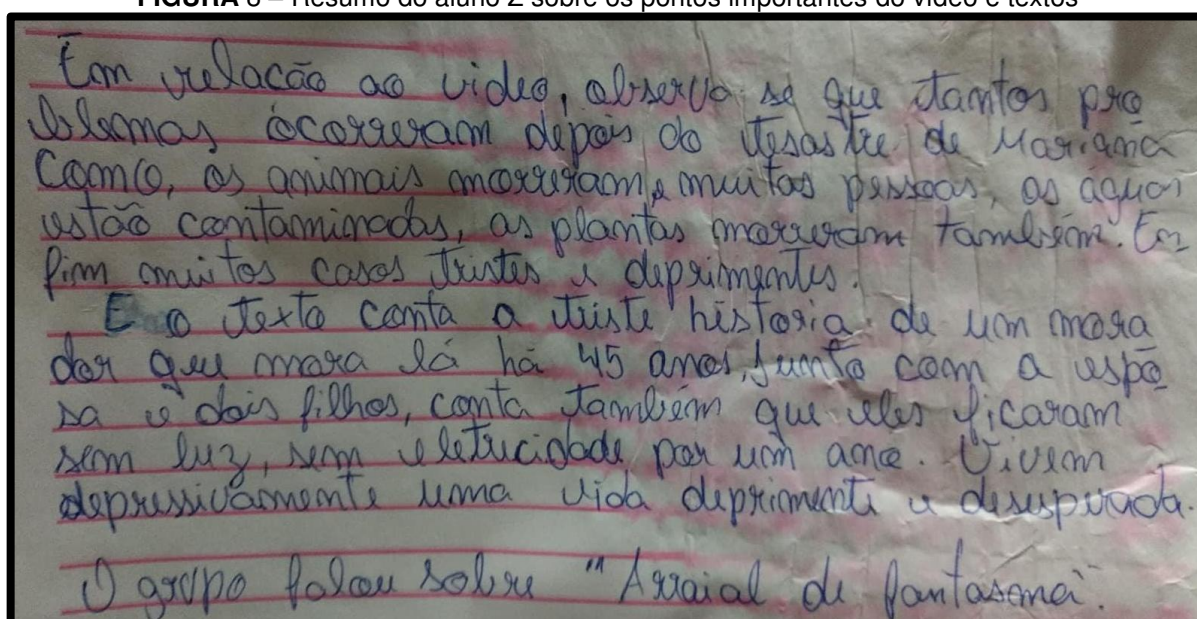 FIGURA 8 – Resumo do aluno Z sobre os pontos importantes do vídeo e textos
Em relação ao video, observa se que tantos pro
blemas ocorreram depois do desastre de Mariana
Como, os animais morreram, muitas pessoas, as águas
estão contaminadas, as plantas morreram também. En
fim muitos casos tristes e deprimentes.
E o texto conta a triste historia de um mora
dor que mora lá há 45 anos, junto com a espo
sa e dois filhos, conta também que eles ficaram
sem luz, sem eletricidade por um ano. Vivem
depressivamente uma vida deprimente e desesperada.
O grupo falou sobre "Arraial de fantasma".